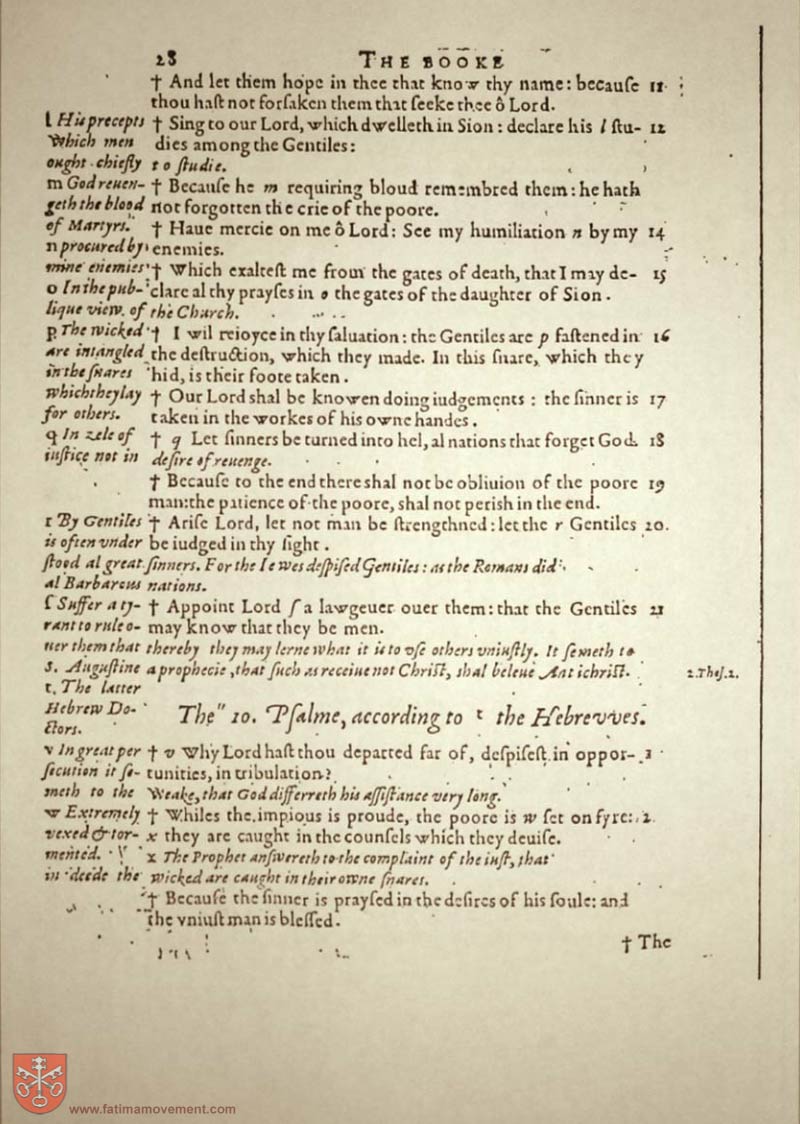 28 THE BOOKE
† And let them hope in thee that know thy name: becauſe 11
thou haſt not forſaken them that ſeeke thee ô Lord.
l His precepts † Sing to our Lord, which dwelleth in Sion: declare his l ſtu- 12
which men dies among the Gentiles:
ought chiefly to ſtudie.
m God reuen- † Becauſe he m requiring bloud remembred them: he hath
geth the blood not forgotten the crie of the poore.
of Martyrs. † Haue mercie on me ô Lord: See my humiliation n by my 14
n procured by enemies.
mine enemies † Which exalteſt me from the gates of death, that I may de- 15
o In the pub- clare al thy prayſes in o the gates of the daughter of Sion.
lique view of the Church.
p The wicked † I wil reioyce in thy ſaluation: the Gentiles are p faſtened in 16
are intangled the deſtruction, which they made. In this ſnare, which they
in the ſnares hid, is their foote taken.
which they lay † Our Lord shal be knowen doing iudgements: the ſinner is 17
for others. taken in the workes of his owne handes.
q In zele of † q Let ſinners be turned into hel, al nations that forget God. 18
iuſtice not in deſire of reuenge.
† Becauſe to the end there shal not be obliuion of the poore 19
man: the patience of the poore, shal not perish in the end.
r By Gentiles † Ariſe Lord, let not man be ſtrengthned: let the r Gentiles 20.
is often vnder be iudged in thy ſight.
ſtood al great ſinners. For the Iewes deſpiſed Gentiles: as the Romans did
al Barbarous nations.
ſ Suffer a ty- † Appoint Lord ſ a lawgeuer ouer them: that the Gentiles 21
rant to rule o- may know that they be men.
uer them that thereby they may lerne what it is to vſe others vniuſtly. It ſemeth to
S. Auguſtine a prophecie, that ſuch as receiue not Chriſt, shal beleue Antichriſt. 2. Theſ. 2.
t. The latter
Hebrew Do- The" 10. Pſalme, according to t the Hebrevves.
ctors.
v In great per † v Why Lord haſt thou departed far of, deſpiſeſt in oppor- 1
ſecution it ſe- tunities, in tribulation?
meth to the Weake, that God differreth his aſſiſtance very long.
w Extremely † Whiles the impious is proude, the poore is w ſet on fyre: 2
vexed & tor- x they are caught in the counſels which they deuiſe.
mented. x The Prophet anſwereth to the complaint of the iuſt, that
in deede the wicked are caught in their owne ſnares.
† Becauſe the ſinner is prayſed in the deſires of his ſoule: and
the vniuſt man is bleſſed.
† The
www.fatimamovement.com